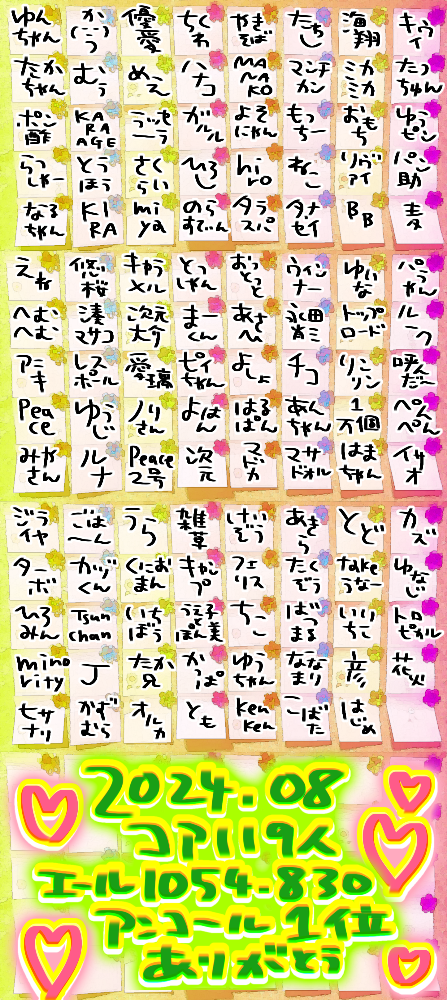 ゆんちゃん
かいつう
優愛
ちくわ
やきそば
たちし
海翔
キゥイ
たかちゃん
むぅ
めぇ
ハナコ
MANAKO
マンチカン
ミカミカ
たっちゅん
ポン酢
KARAAGE
ガルル
よそにゃん
もっちー
おもち
ゆうピン
らっしゃー
とうほう
さくらい
ひろし
hiro
ねこ
リヴァイ
パン助
なるちゃん
KIRA
miya
のらすでぃん
タラスパ
ダナセイ
BB
麦
えね
悠桜
キャラメル
とっしゃん
おっとっと
ウィンナー
ゆいな
パラちゃん
へむへむ
湊マサコ
次元大介
まーくん
あさひ
永田宵ミ
トップロード
ルーク
アニキ
レスポール
愛璃
ピィちゃん
よしょ
チコ
リンリン
呼んだー
Peace
ゆうじ
ノリさん
よはん
はるぱぱん
あんちゃん
1万個
ぺんぺん
みかさん
ルナ
Peace2号
次元
マドカ
マサドォル
はまちゃん
イサオ
ジライヤ
ごはん～
うら
雑草
けいぞう
あきら
とど
カズ
ターボ
カヅくん
くにおまん
キャップ
フェリス
たくぞう
なkeうなー
ゆなじ
ひろみん
Tsunchan
いちばう
ちこ
ばつまる
いいちこ
トロピカル
minority
J
たか兄
かっぱ
ゆうちゃん
ななまり
彦
花火
ヒサナリ
かずむら
オルカ
とも
KenKen
こばた
はじめ
2024.08
コア119人
エール1054.830
アンコール1位
ありがとう